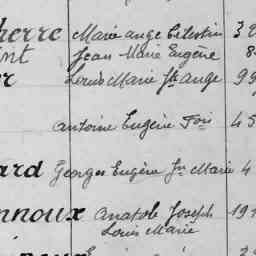 herre Marie ange Célestin 32
int Jean Marie Eugène 8
er Louis Marie Ste Ange 99
Antoine Eugène Fois 45
ard Georges Eugène Jn Marie 4
nnoux Anatole Joseph 191
Louis Marie